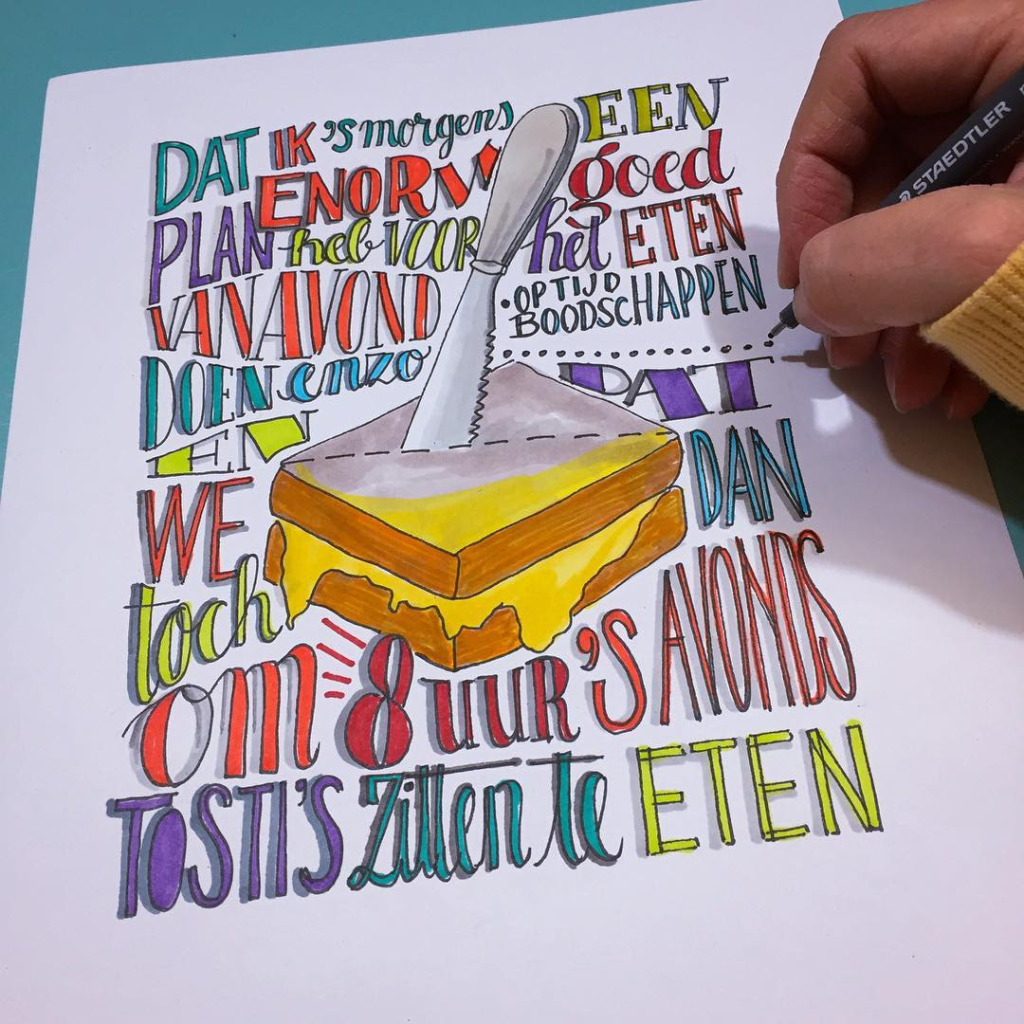 DAT IK 'S morgens EEN
ENORM goed
PLAN heb VOOR het ETEN
VANAVOND ·OP TIJD
BOODSCHAPPEN
DOEN enzo
EN DAT
WE DAN
toch
om 8 UUR 'S AVONDS
TOSTI'S zitten te ETEN
STAEDTLER